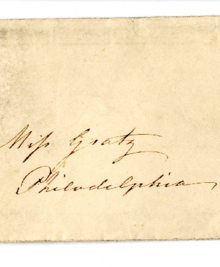 Miss Gratz
Philadelphia